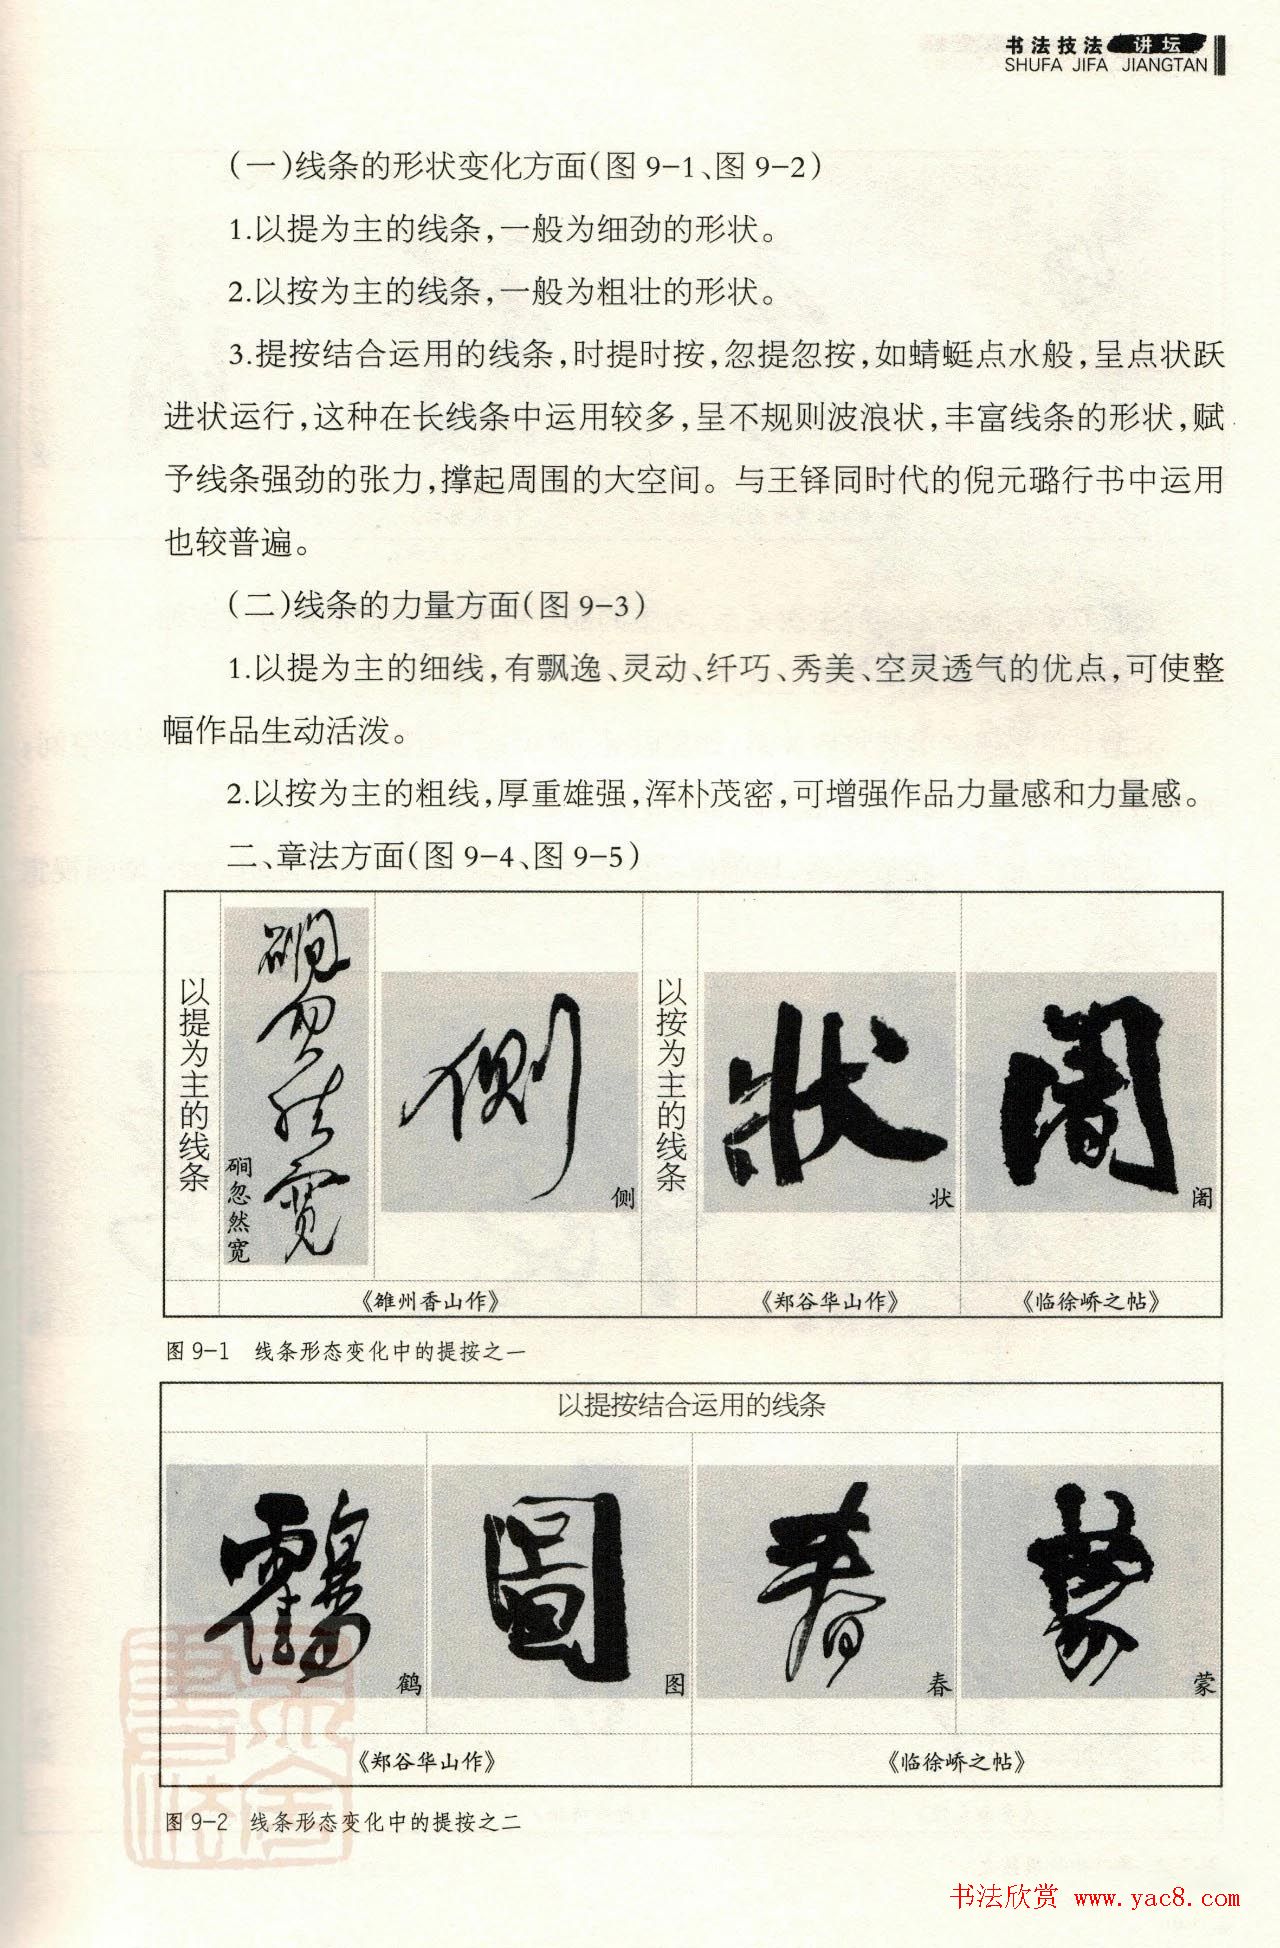 书法技法 讲坛
SHUFA JIFA JIANGTAN
(一)线条的形状变化方面(图9-1、图9-2)
1.以提为主的线条,一般为细劲的形状。
2.以按为主的线条,一般为粗壮的形状。
3.提按结合运用的线条,时提时按,忽提忽按,如蜻蜓点水般,呈点状跃
进状运行,这种在长线条中运用较多,呈不规则波浪状,丰富线条的形状,赋
予线条强劲的张力,撑起周围的大空间。与王铎同时代的倪元璐行书中运用
也较普遍。
(二)线条的力量方面(图9-3)
1.以提为主的细线,有飘逸、灵动、纤巧、秀美、空灵透气的优点,可使整
幅作品生动活泼。
2.以按为主的粗线,厚重雄强,浑朴茂密,可增强作品力量感和力量感。
二、章法方面(图9-4、图9-5)
以提为主的线条
硐忽然宽
侧
以按为主的线条
状
阇
《雒州香山作》
《郑谷华山作》
《临徐峤之帖》
图9-1 线条形态变化中的提按之一
以提按结合运用的线条
鹤
图
春
蒙
《郑谷华山作》
《临徐峤之帖》
图9-2 线条形态变化中的提按之二
书法欣赏 www.yac8.com